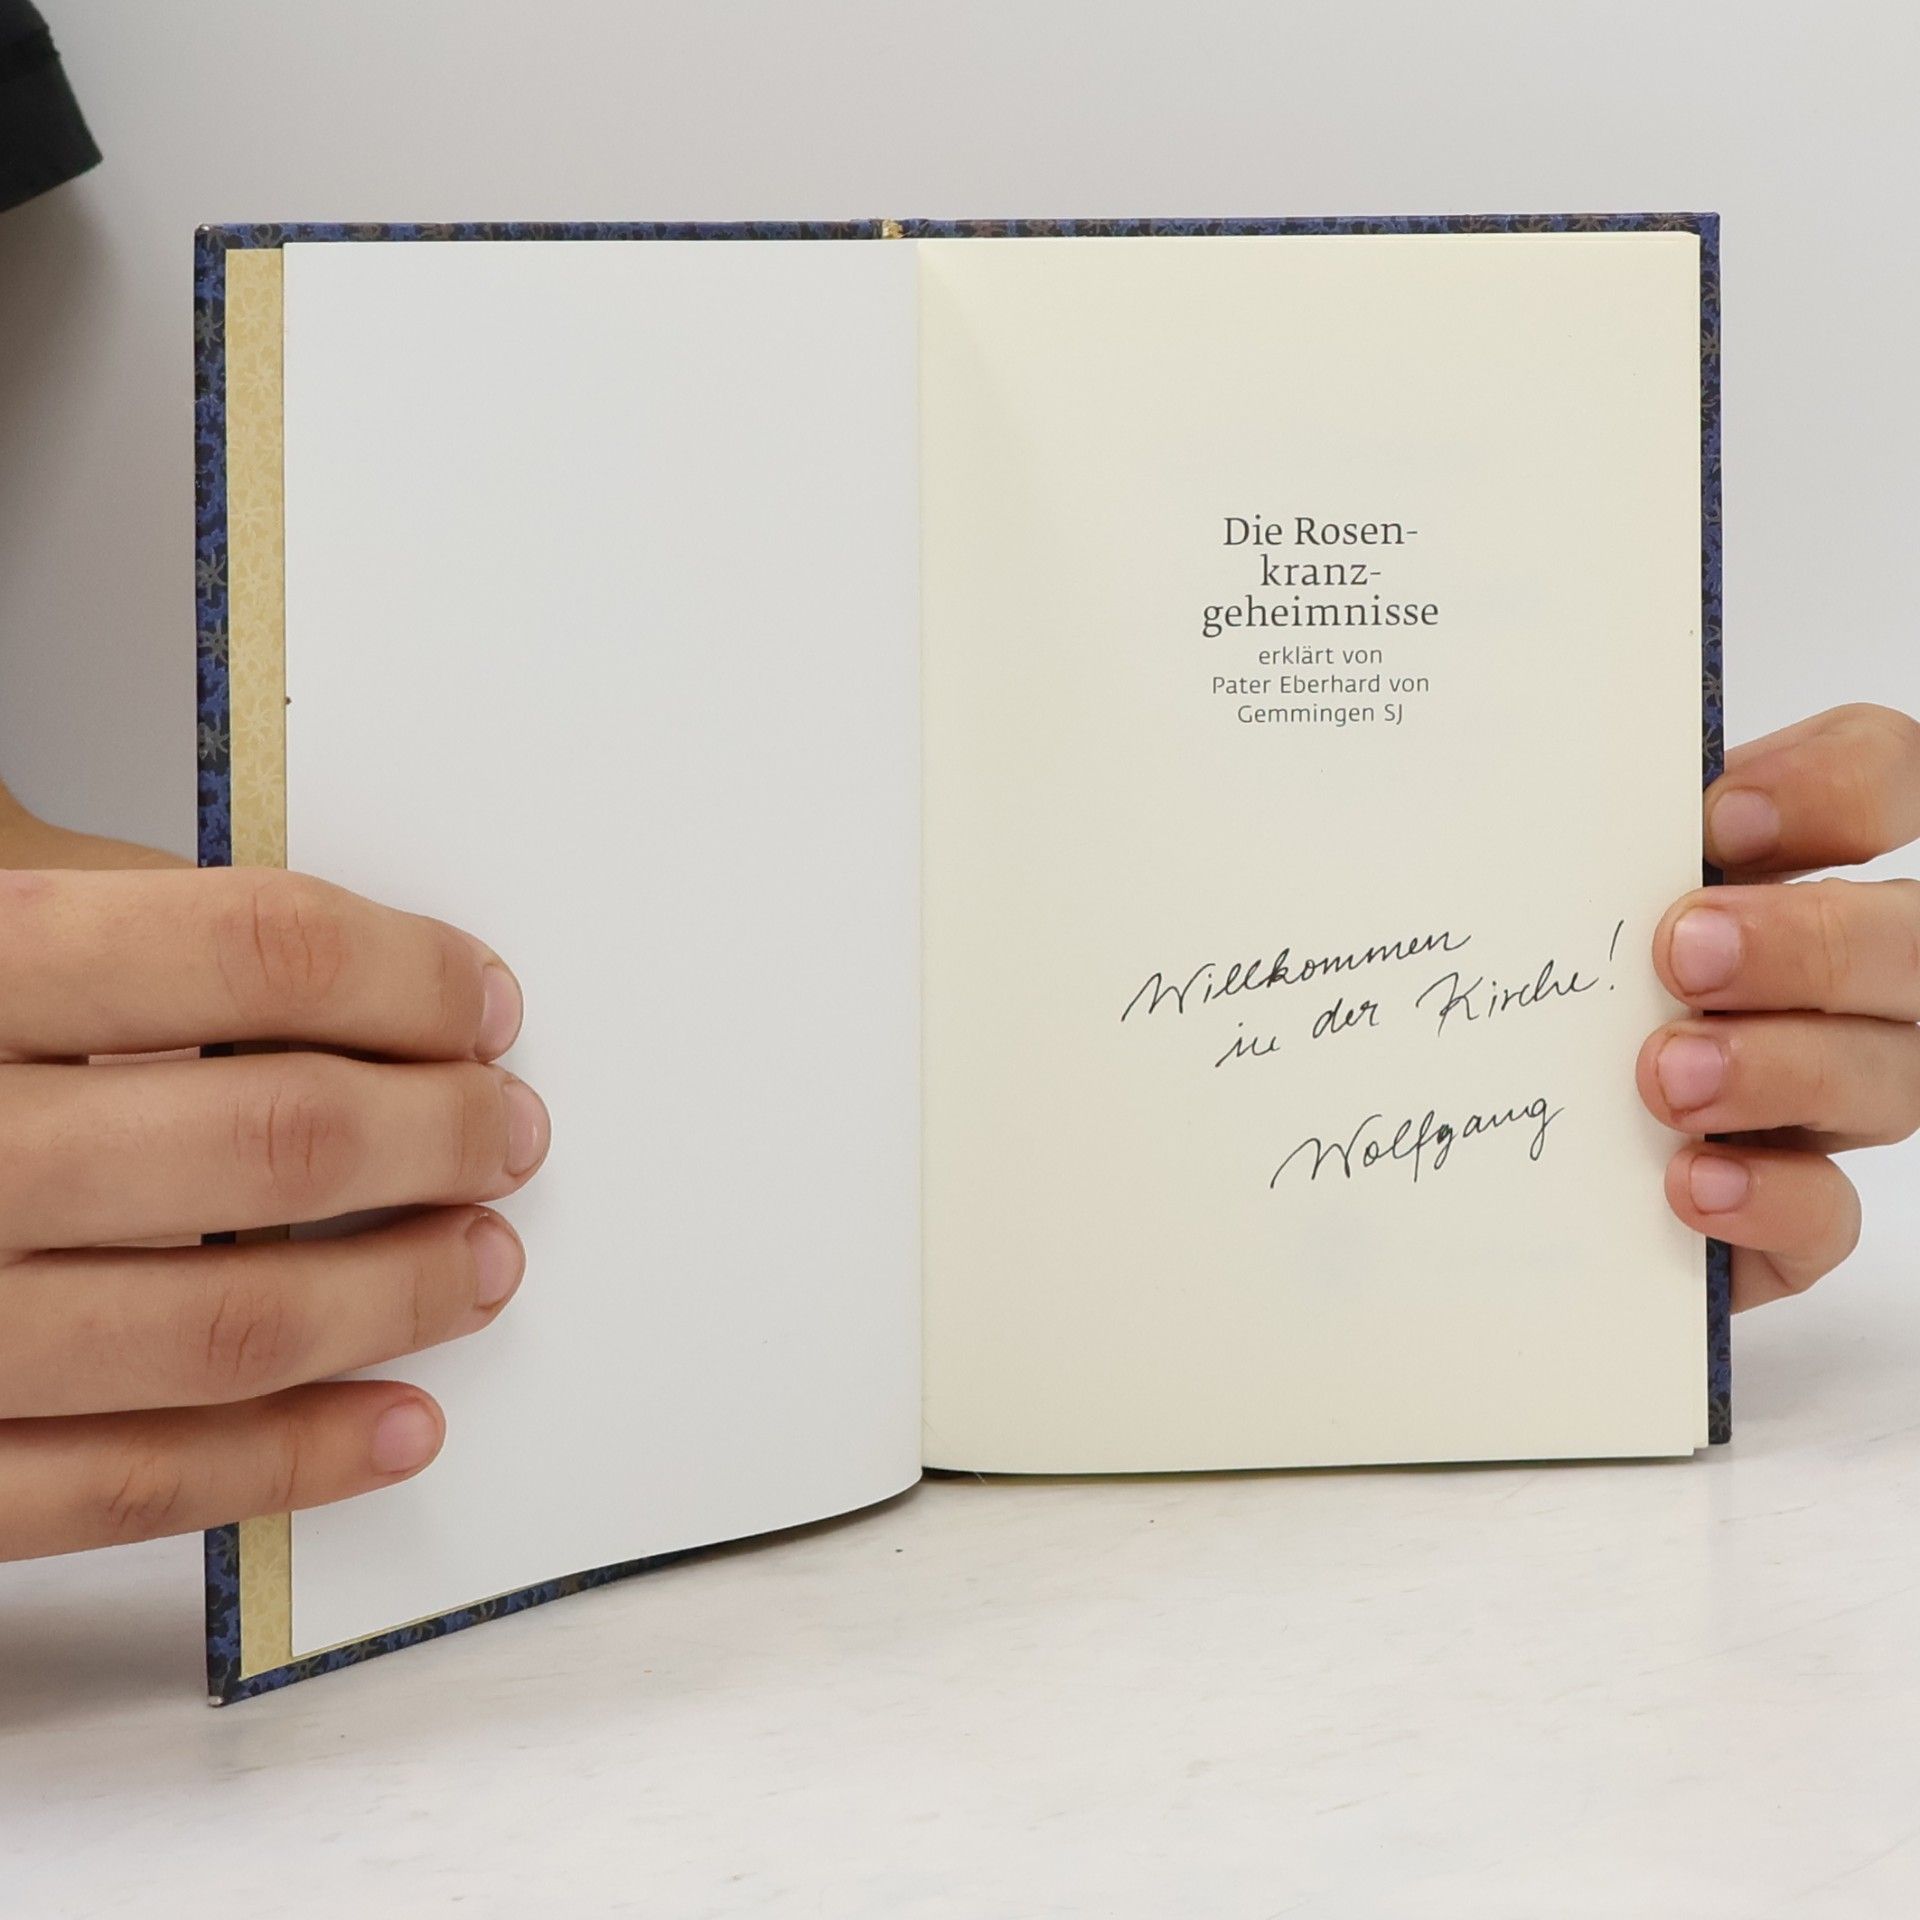 Die Rosen-
kranz-
geheimnisse
erklärt von
Pater Eberhard von
Gemmingen SJ
Willkommen
in der Kirche!
Wolfgang